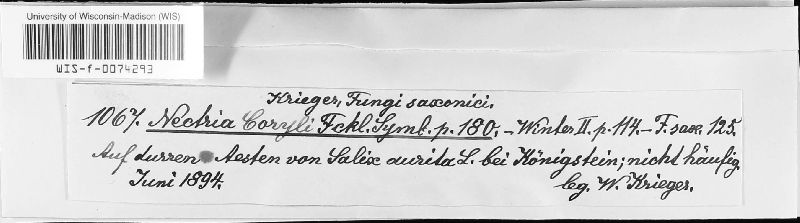 University of Wisconsin-Madison (WIS)
WIS-f-0074293
Krieger, Fungi saxonici.
1067. Nectria Coryli Fckl. Symb. p. 180; - Winter II. p. 114. - F. sax. 125.
Auf durren Aesten von Salix aurita L. bei Königstein; nicht häufig.
Juni 1894. leg. W. Krieger.